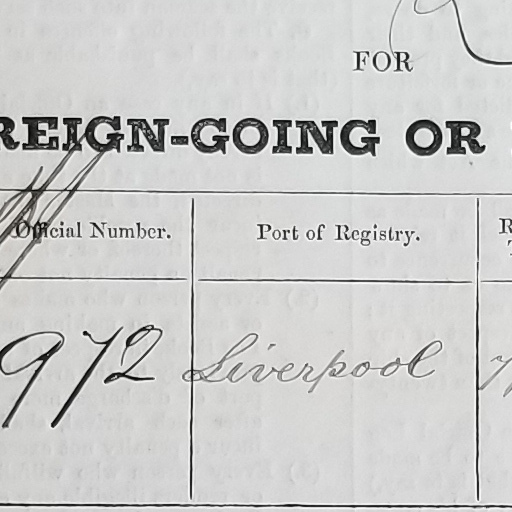 FOR
REIGN-GOING OR
Official Number. Port of Registry.
972 Liverpool